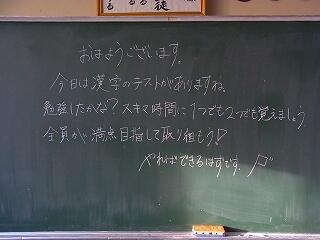 おはようございます。
今日は漢字のテストがありますね。
勉強したかな？スキマ時間に1つでも2つでも覚えましょう
全員が満点目指して取り組もう!
やればできるはずです。